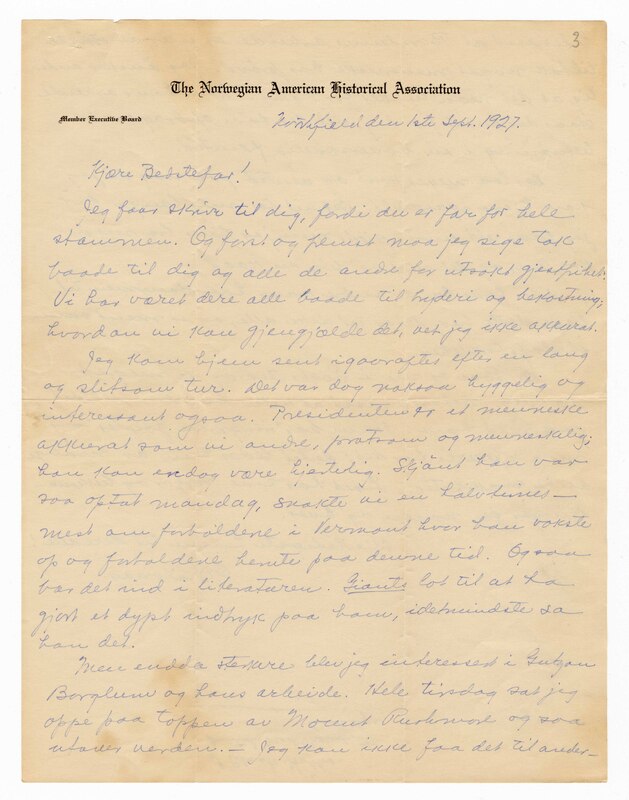 3
The Norwegian American Historical Association
Member Executive Board
Northfield den 1ste Sept. 1927.
Kjære Bedstefar!
Jeg faar skrive til dig, fordi du er far for hele
stammen. Og först og fremst maa jeg sige tak
baade til dig og alle de andre for utsökt gjestfrihet.
Vi har været dere alle baade til bryderi og bekostning;
hvordan vi kan gjengjælde det, vet jeg ikke akkurat.
Jeg kom hjem sent igaaraftes efter en lang
og slitsom tur. Det var dog noksaa hyggelig og
interessant ogsaa. Presidenten er et menneske
akkurat som vi andre, pratsom og menneskelig;
han kan endog være hjertelig. Skjönt han var
saa optat mandag, snakte vi en halvtimes —
mest om forholdene i Vermont hvor han vokste
op og forholdene herute paa denne tid. Ogsaa
bar det ind i literaturen. Giants lot til at ha
gjort et dypt indtryk paa ham, idetmindste sa
han det.
Men endda sterkere blev jeg interessert i Gutzon
Borglum og hans arbeide. Hele tirsdag sat jeg
oppe paa toppen av Mount Rushmore og saa
utover verden. — Jeg kan ikke faa det til ander-